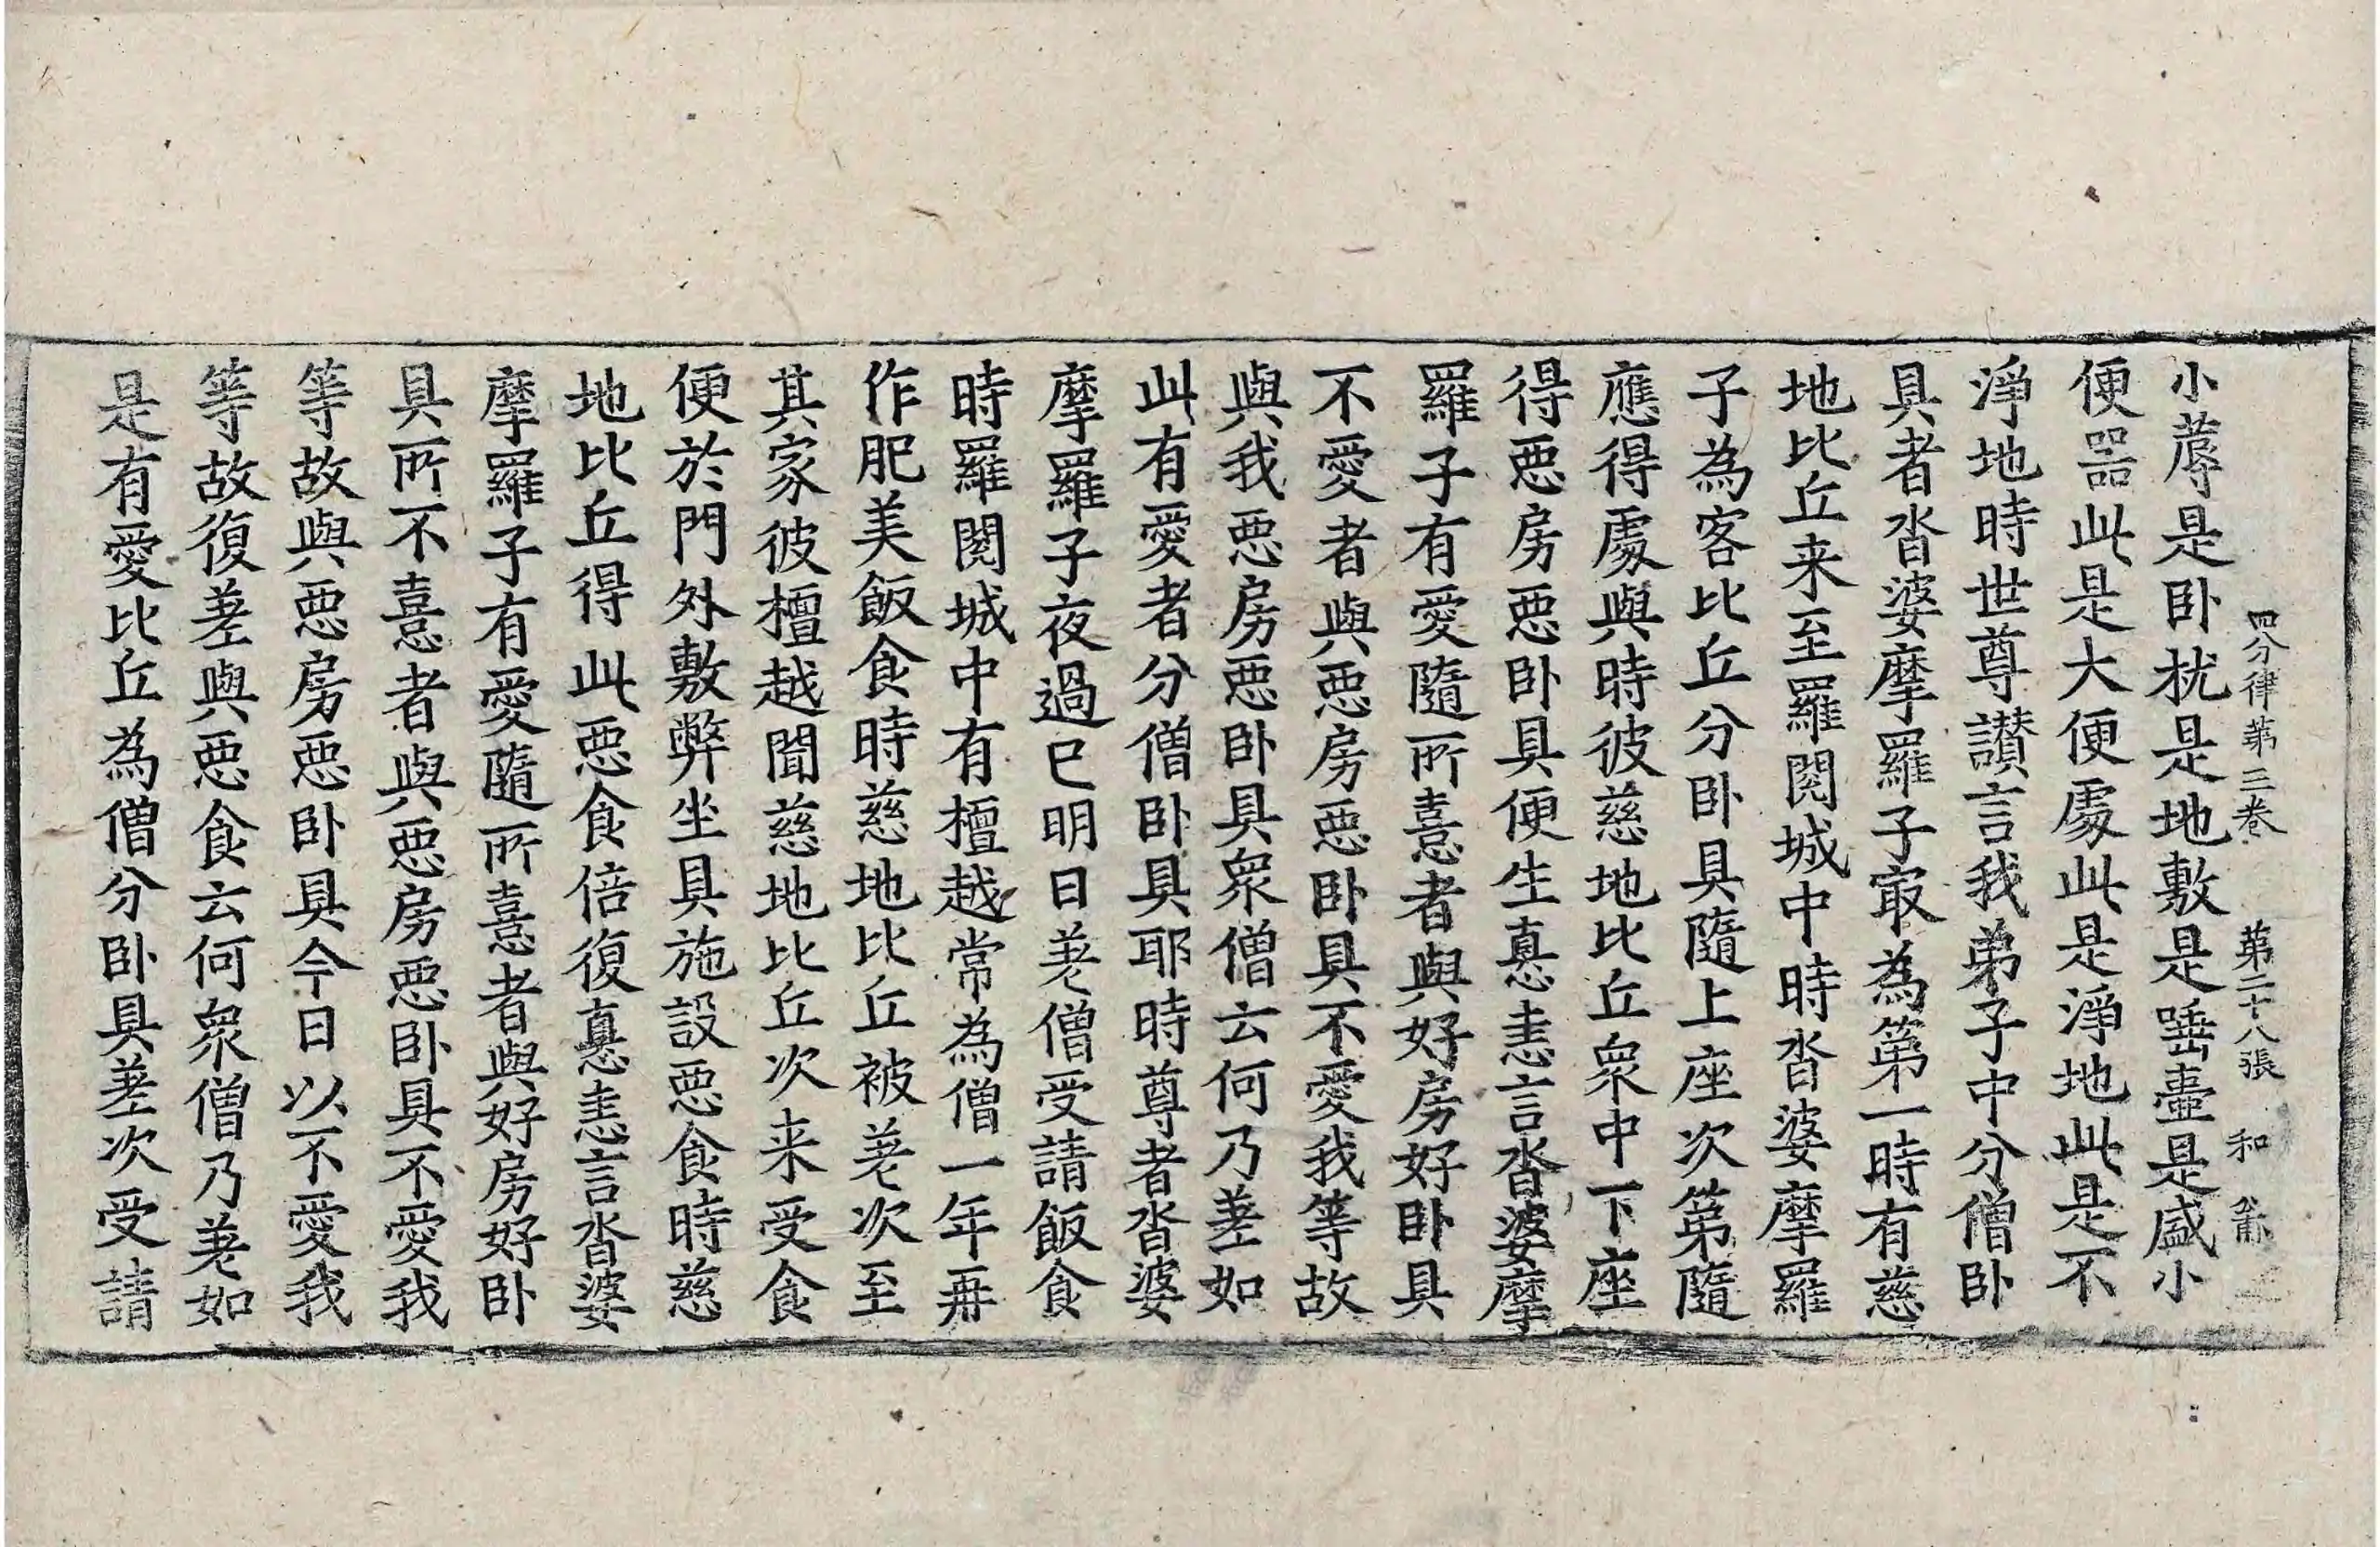 四分律第三卷 第二十八張 和
小蓐是卧枕是地敷是唾壺是盛小
便器此是大便處此是淨地此是不
淨地時世尊讃言我弟子中分僧卧
具者沓婆摩羅子㝡為第一時有慈
地比丘来至羅閱城中時沓婆摩羅
子為客比丘分卧具隨上座次第隨
應得處與時彼慈地比丘衆中下座
得惡房惡卧具便生恚恚言沓婆摩
羅子有愛隨所憙者與好房好卧具
不愛者與惡房惡卧具不愛我等故
與我惡房惡卧具衆僧云何乃差如
此有愛者分僧卧具耶時尊者沓婆
摩羅子夜過已明日差僧受請飯食
時羅閱城中有檀越常為僧一年再
作肥美飯食時慈地比丘被差次至
其家彼檀越聞慈地比丘次来受食
便於門外敷弊坐具施設惡食時慈
地比丘得此惡食倍復恚恚言沓婆
摩羅子有愛隨所憙者與好房好卧
具所不憙者與惡房惡卧具不愛我
等故與惡房惡卧具今日以不愛我
等故復差與惡食云何衆僧乃差如
是有愛比丘為僧分卧具差次受請